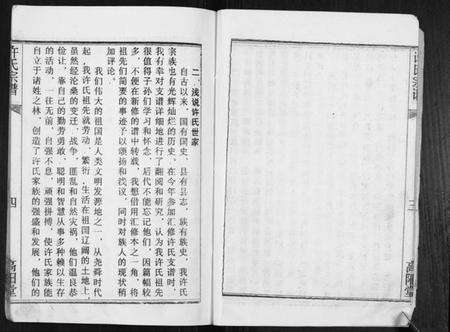 二、浅说许氏世家
自古以来，国有国史，县有县志，族有族史，我许氏
宗族也有光辉灿烂的历史。在今年参加汇修许氏支谱时，
我有幸对支谱详细地进行了翻阅和研究，认为我许氏祖先
很值得子孙们学习和怀念，后代不能忘记他们，因篇幅较
多，不便在新修的谱中转载，我想借用汇修本之一角，将
祖先们简要的事迹予以颂扬和浅议，同时对族人的现状稍
加评论。
我们伟大的祖国是人类文明发源地之一，从尧舜时代
起，我许氏祖先就劳动、繁衍、生活在祖国辽阔的土地上，
虽然经沧桑的变迁、战争、匪乱和自然灾祸，他们温良恭
俭让，靠自己的勤劳勇敢、聪明和智慧从事多种赖以生存
的活动，一往无前，自强不息，顽强拼搏，使许氏家族能
自立于诸姓之林，创造了许氏家族的强盛和发展，他们的
许氏宗谱
四
高阳堂
许氏宗谱
三
高阳堂